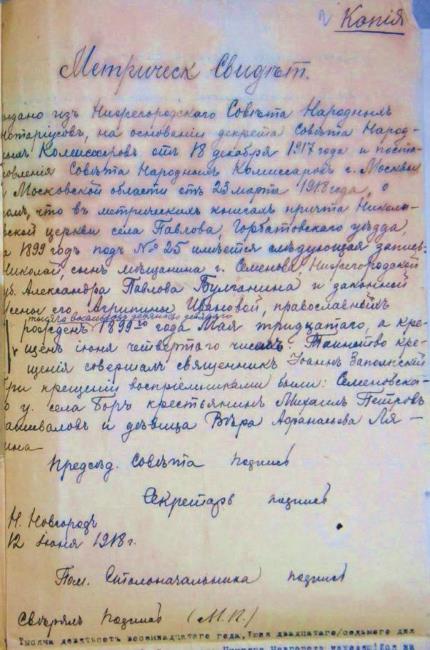 Копія
Метрическ Свидѣт.
ыдано изъ Нижегородскаго Совѣта Народныхъ
Нотаріусовъ, на основаніи декрета Совѣта Народ-
ныхъ Комиссаровъ отъ 18 декабря 1917 года и поста-
овленія Совѣта Народныхъ Комиссаровъ г. Москвы
Московской области отъ 23 марта 1918 года, о
томъ, что въ метрическихъ книгахъ причта Николь-
ской церкви села Павлова, Горбатовскаго уѣзда,
а 1899 годъ подъ № 25 имѣется слѣдующая запись:
Николай, сынъ мѣщанина г. Семенова, Нижегородской
уб. Александра Павлова Булганина и законной
жены его Агрипины Ивановой, православныхъ
тысяча восемьсотъ девяносто девятаго
рожденъ 1899го года Мая тридцатаго, а кре-
щенъ іюня четвертаго числа. Таинство кре-
щенія совершалъ священникъ Іоаннъ Запольскій
При крещеніи воспріемниками были: Семеновска-
о у. села Боръ крестьянинъ Михаилъ Петровъ
и дѣвица Вѣра Афанасьева Ля-
ина
Предсѣд. Совѣта подпись
Секретарь подпись
Н. Новгородъ
12 Іюня 1918 г.
Пом. Столоначальника подпись
Свѣрялъ подпись (М.П.)
Тысяча девятьсотъ восемнадцатаго года, Іюня двадцатаго/седьмого дня